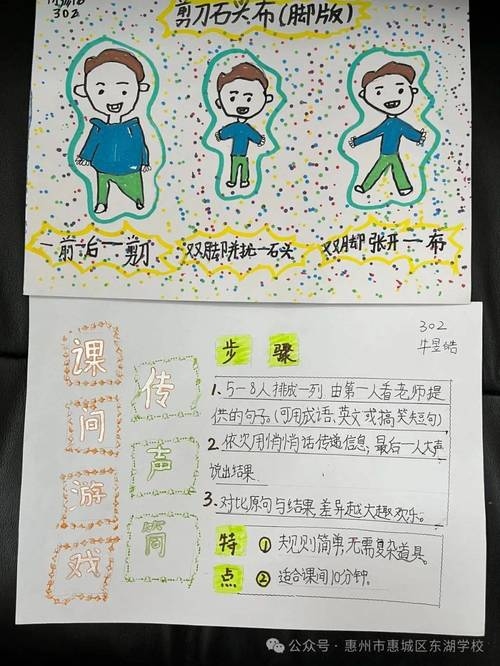 302
剪刀石头布(脚版)
一前一后一剪刀
双脚并拢一石头
双脚张开一布
302
牛昱皓
课间游戏
传声筒
步骤
1. 5-8人排成一列,由第一人看老师提
供的句子。(可用成语、英文或搞笑短句)
2. 依次用悄悄话传递信息,最后一人大声
说出结果.
3. 对比原句与结果,差异越大趣欢乐。
特点
① 规则简单,无需复杂道具。
② 适合课间10分钟。
公众号·惠州市惠城区东湖学校